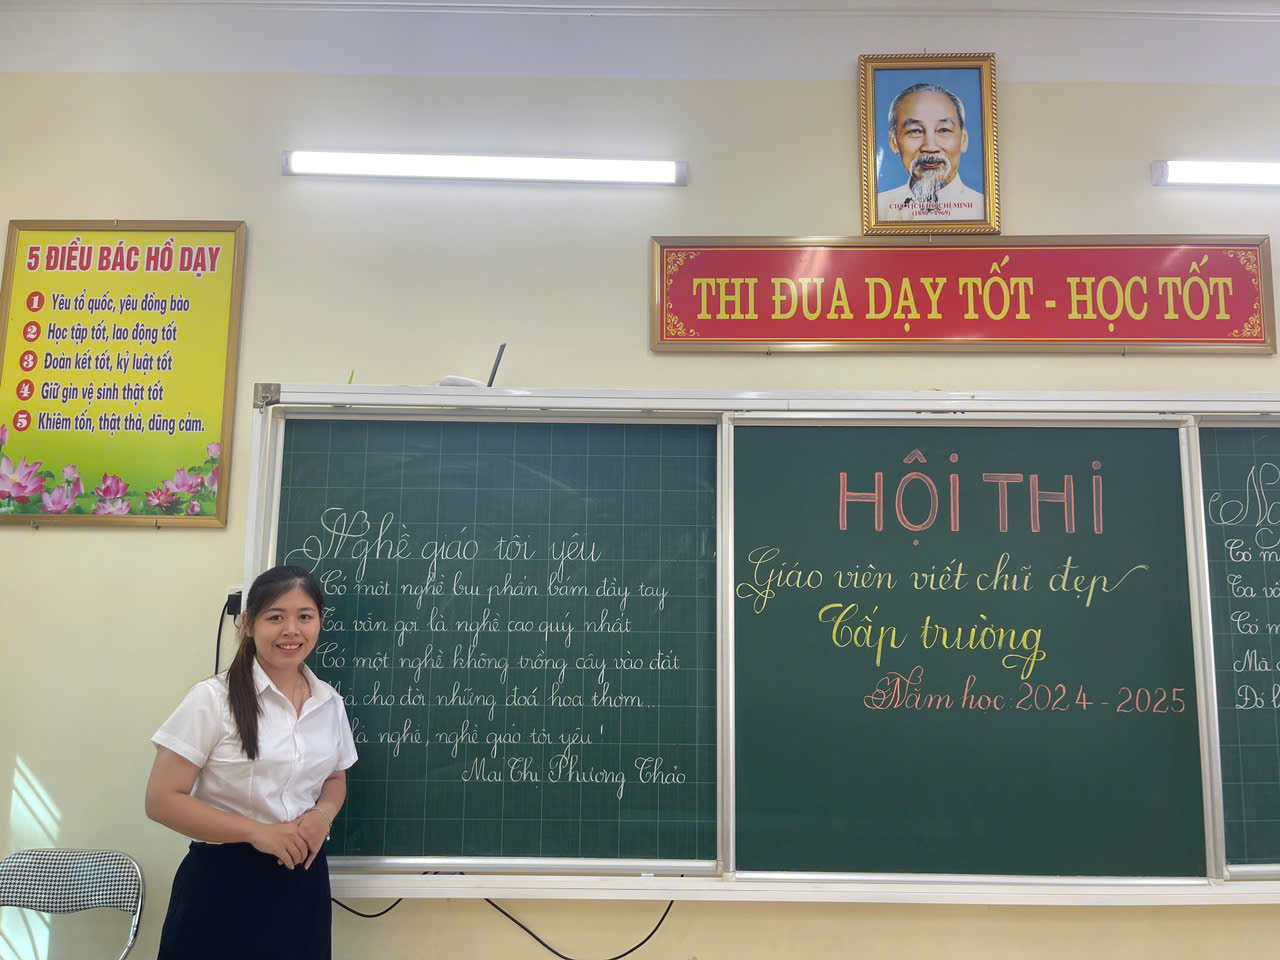 5 ĐIỀU BÁC HỒ DẠY
1 Yêu tổ quốc, yêu đồng bào
2 Học tập tốt, lao động tốt
3 Đoàn kết tốt, kỷ luật tốt
4 Giữ gìn vệ sinh thật tốt
5 Khiêm tốn, thật thà, dũng cảm.
CHỦ TỊCH HỒ CHÍ MINH
(1890 - 1969)
THI ĐUA DẠY TỐT - HỌC TỐT
Nghề giáo tôi yêu
Có một nghề bụi phấn bám đầy tay
Ta vẫn gọi là nghề cao quý nhất
Có một nghề không trồng cây vào đất
Mà cho đời những đoá hoa thơm...
là nghề, nghề giáo tôi yêu!
Mai Thị Phương Thảo
HỘI THI
Giáo viên viết chữ đẹp
Cấp trường
Năm học: 2024 - 2025
Có m
Ta vẫ
Có m
Mà c
Đó l